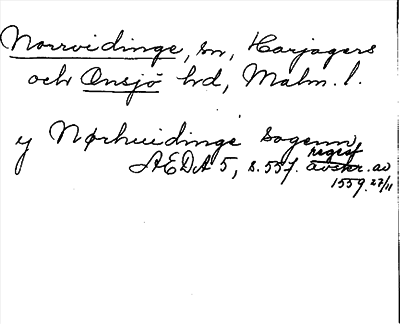 Norrvidinge, sn, Harjagers
och Onsjö hd, Malm. l.
y Nørhuidinge sogenn
regist
AEDA 5, s. 557. avskr. av
1559. 27/11